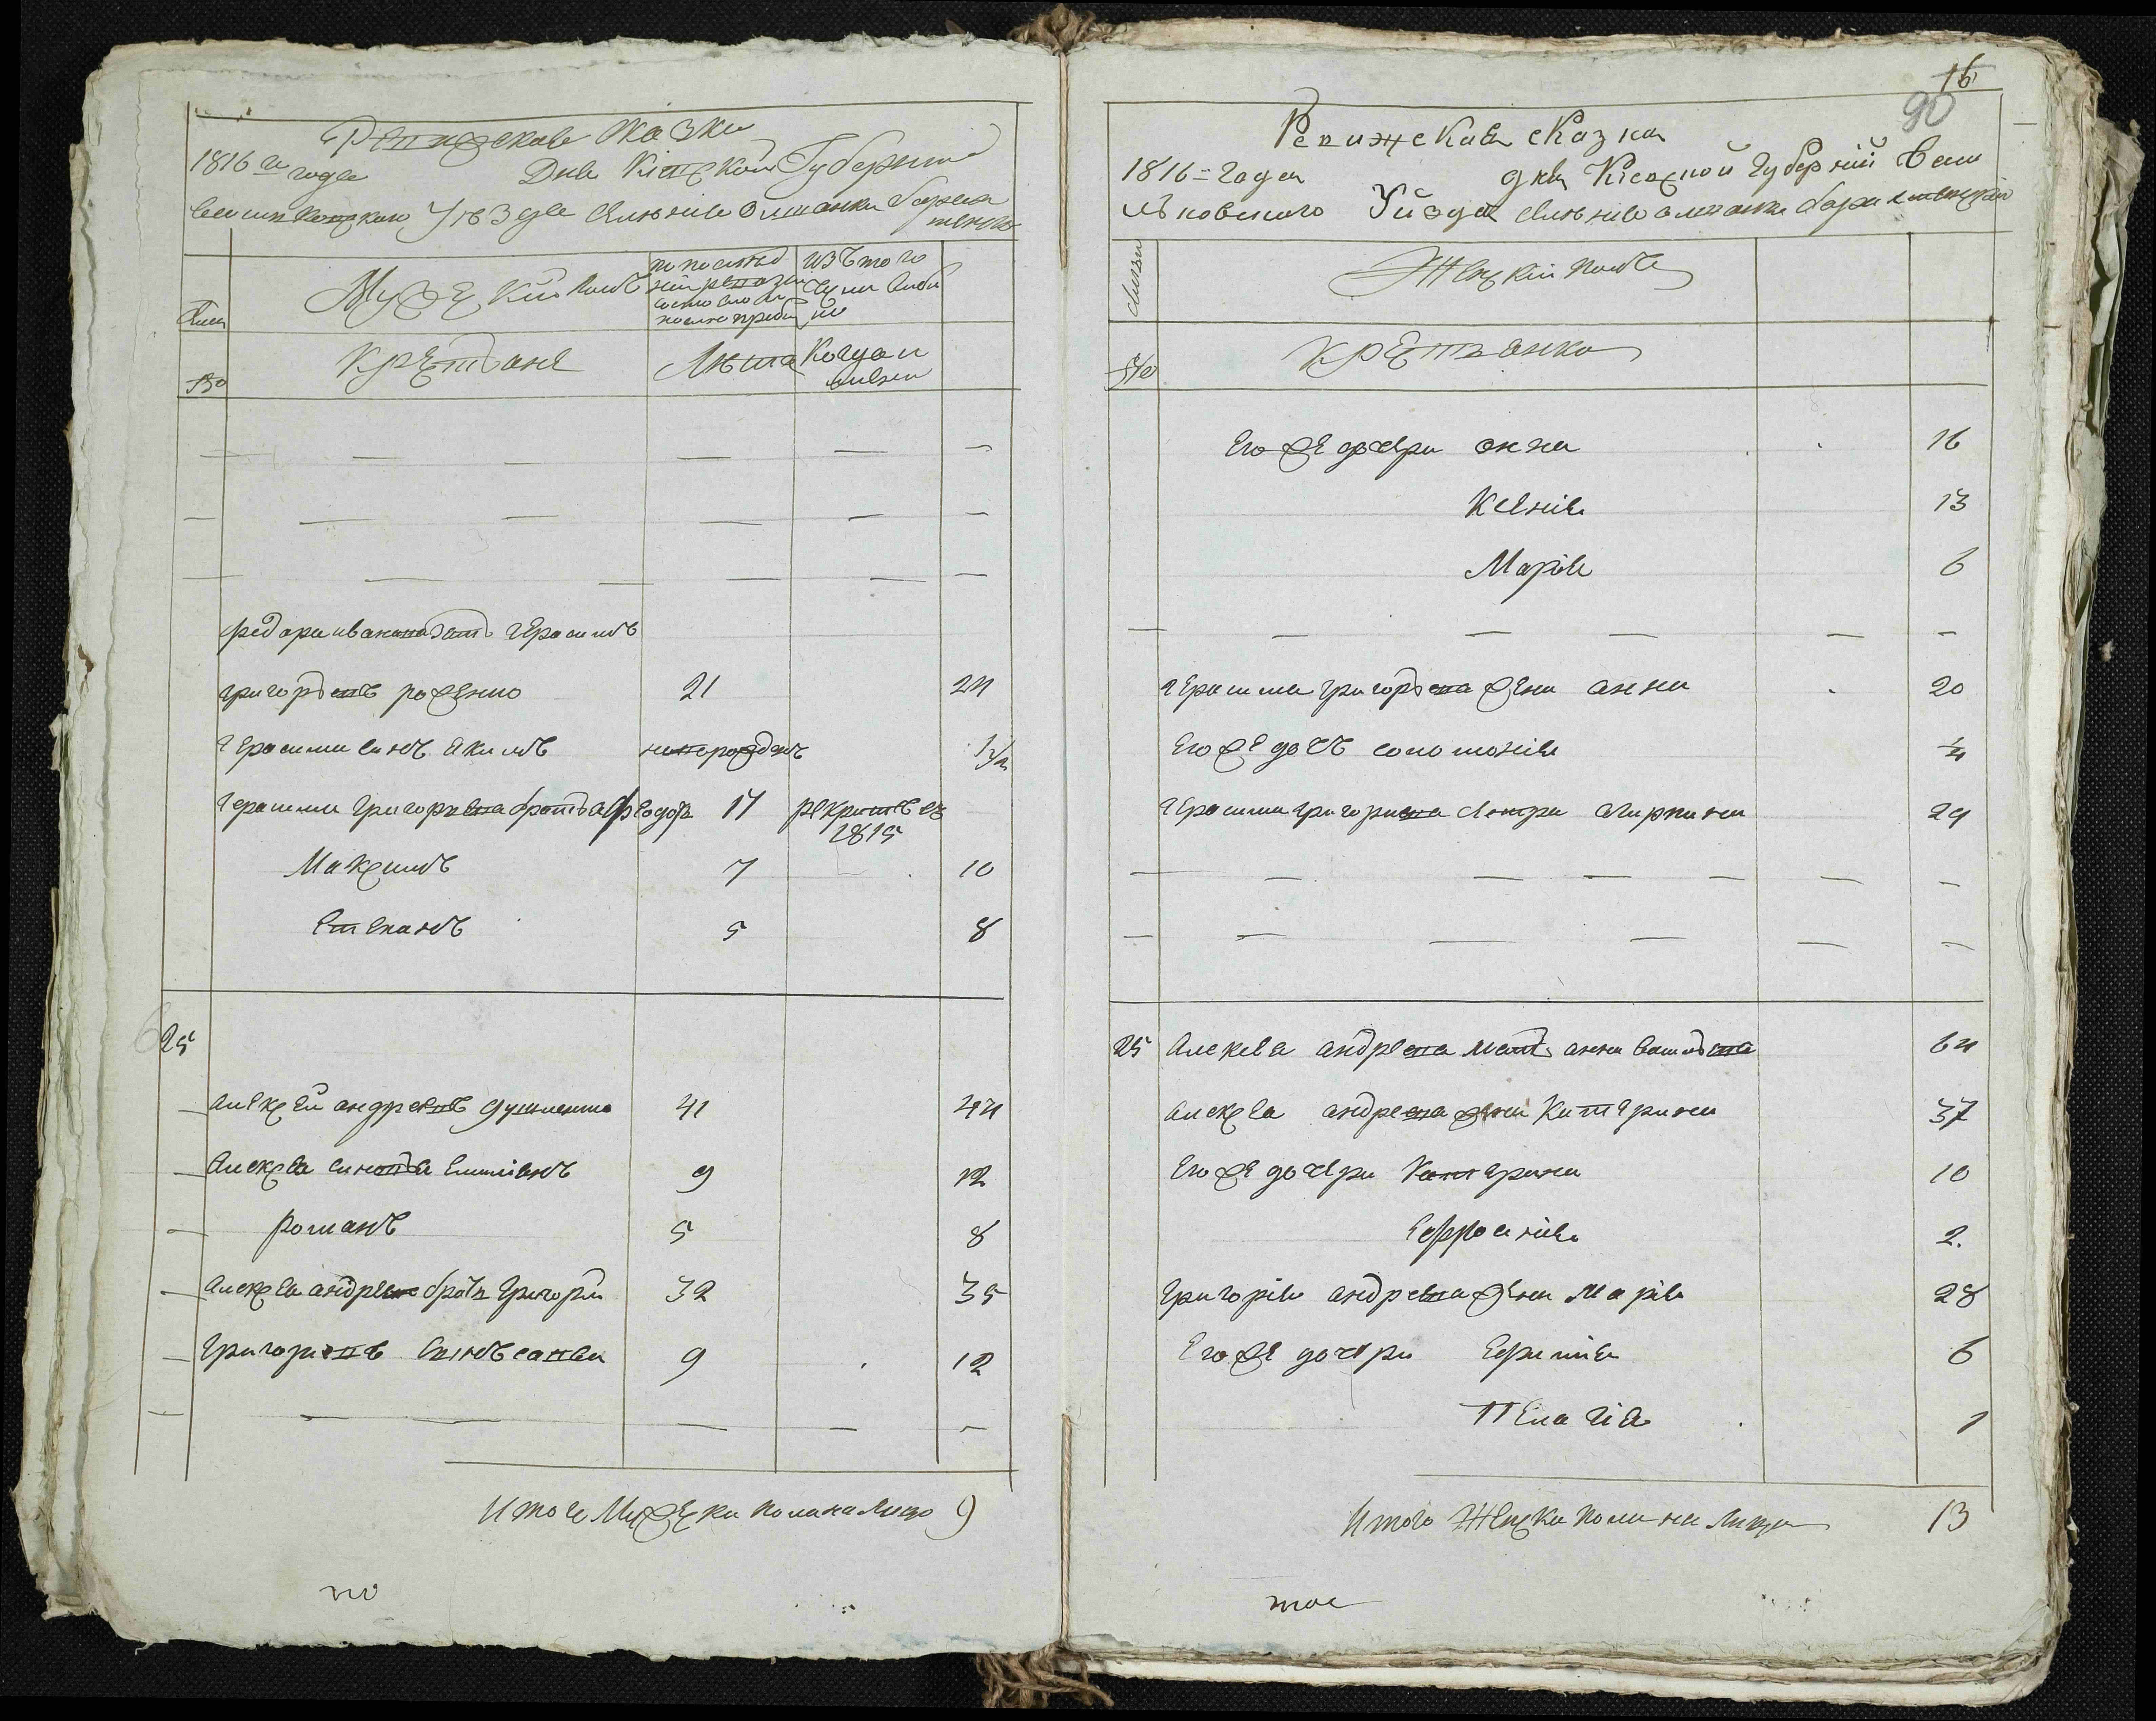 Ревижская сказка
1816 го года Дня Кіевской Губерніи
Уезда Селенія Олшанки
Мужескій полъ
по послед
ней ревизіи
состояло и
после прибы
ло
Изъ того
числа выбы
ло
Крестьяне
Лета
Когда и
именно
№
Федора Ивановъ зять Герасимъ
григорьевъ роженко 21 24
Герасима синъ Якимъ новорожденъ 1/2
Герасима Григориева братья Феодоръ 17 рекрутъ въ
1815
Максимъ 7 10
Степанъ 5 8
25
Алексей андреевъ 41 44
Алексея синовья Емилианъ 9 12
романъ 5 8
Алексея андреева братъ Григорій 32 35
Григориевъ Синъ савва 9 12
Итого Мужеска пола на лицо 9
по
16
90
Ревижская сказка
1816 = Года дня Кіевской Губерніи Васи
льковского Уезда Селенія олшанки
Семьи
Женскій полъ
№
крестьянки
Его же дочери анна 16
Ксенія 13
Марія 6
Герасима григорьева жена анна 20
Его же дочь соломонія 1/4
Герасима григориева сестра 24
25 Алексея андреева мать анна васильева 64
Алексея андреева жена Катерина 37
Его же дочери Катерина 10
Ефросинія 2.
Григорія андреева жена Марія 28
Его же дочери Ефимія 6
Пелагія 1
Итого Женска пола на лицо 13
мое